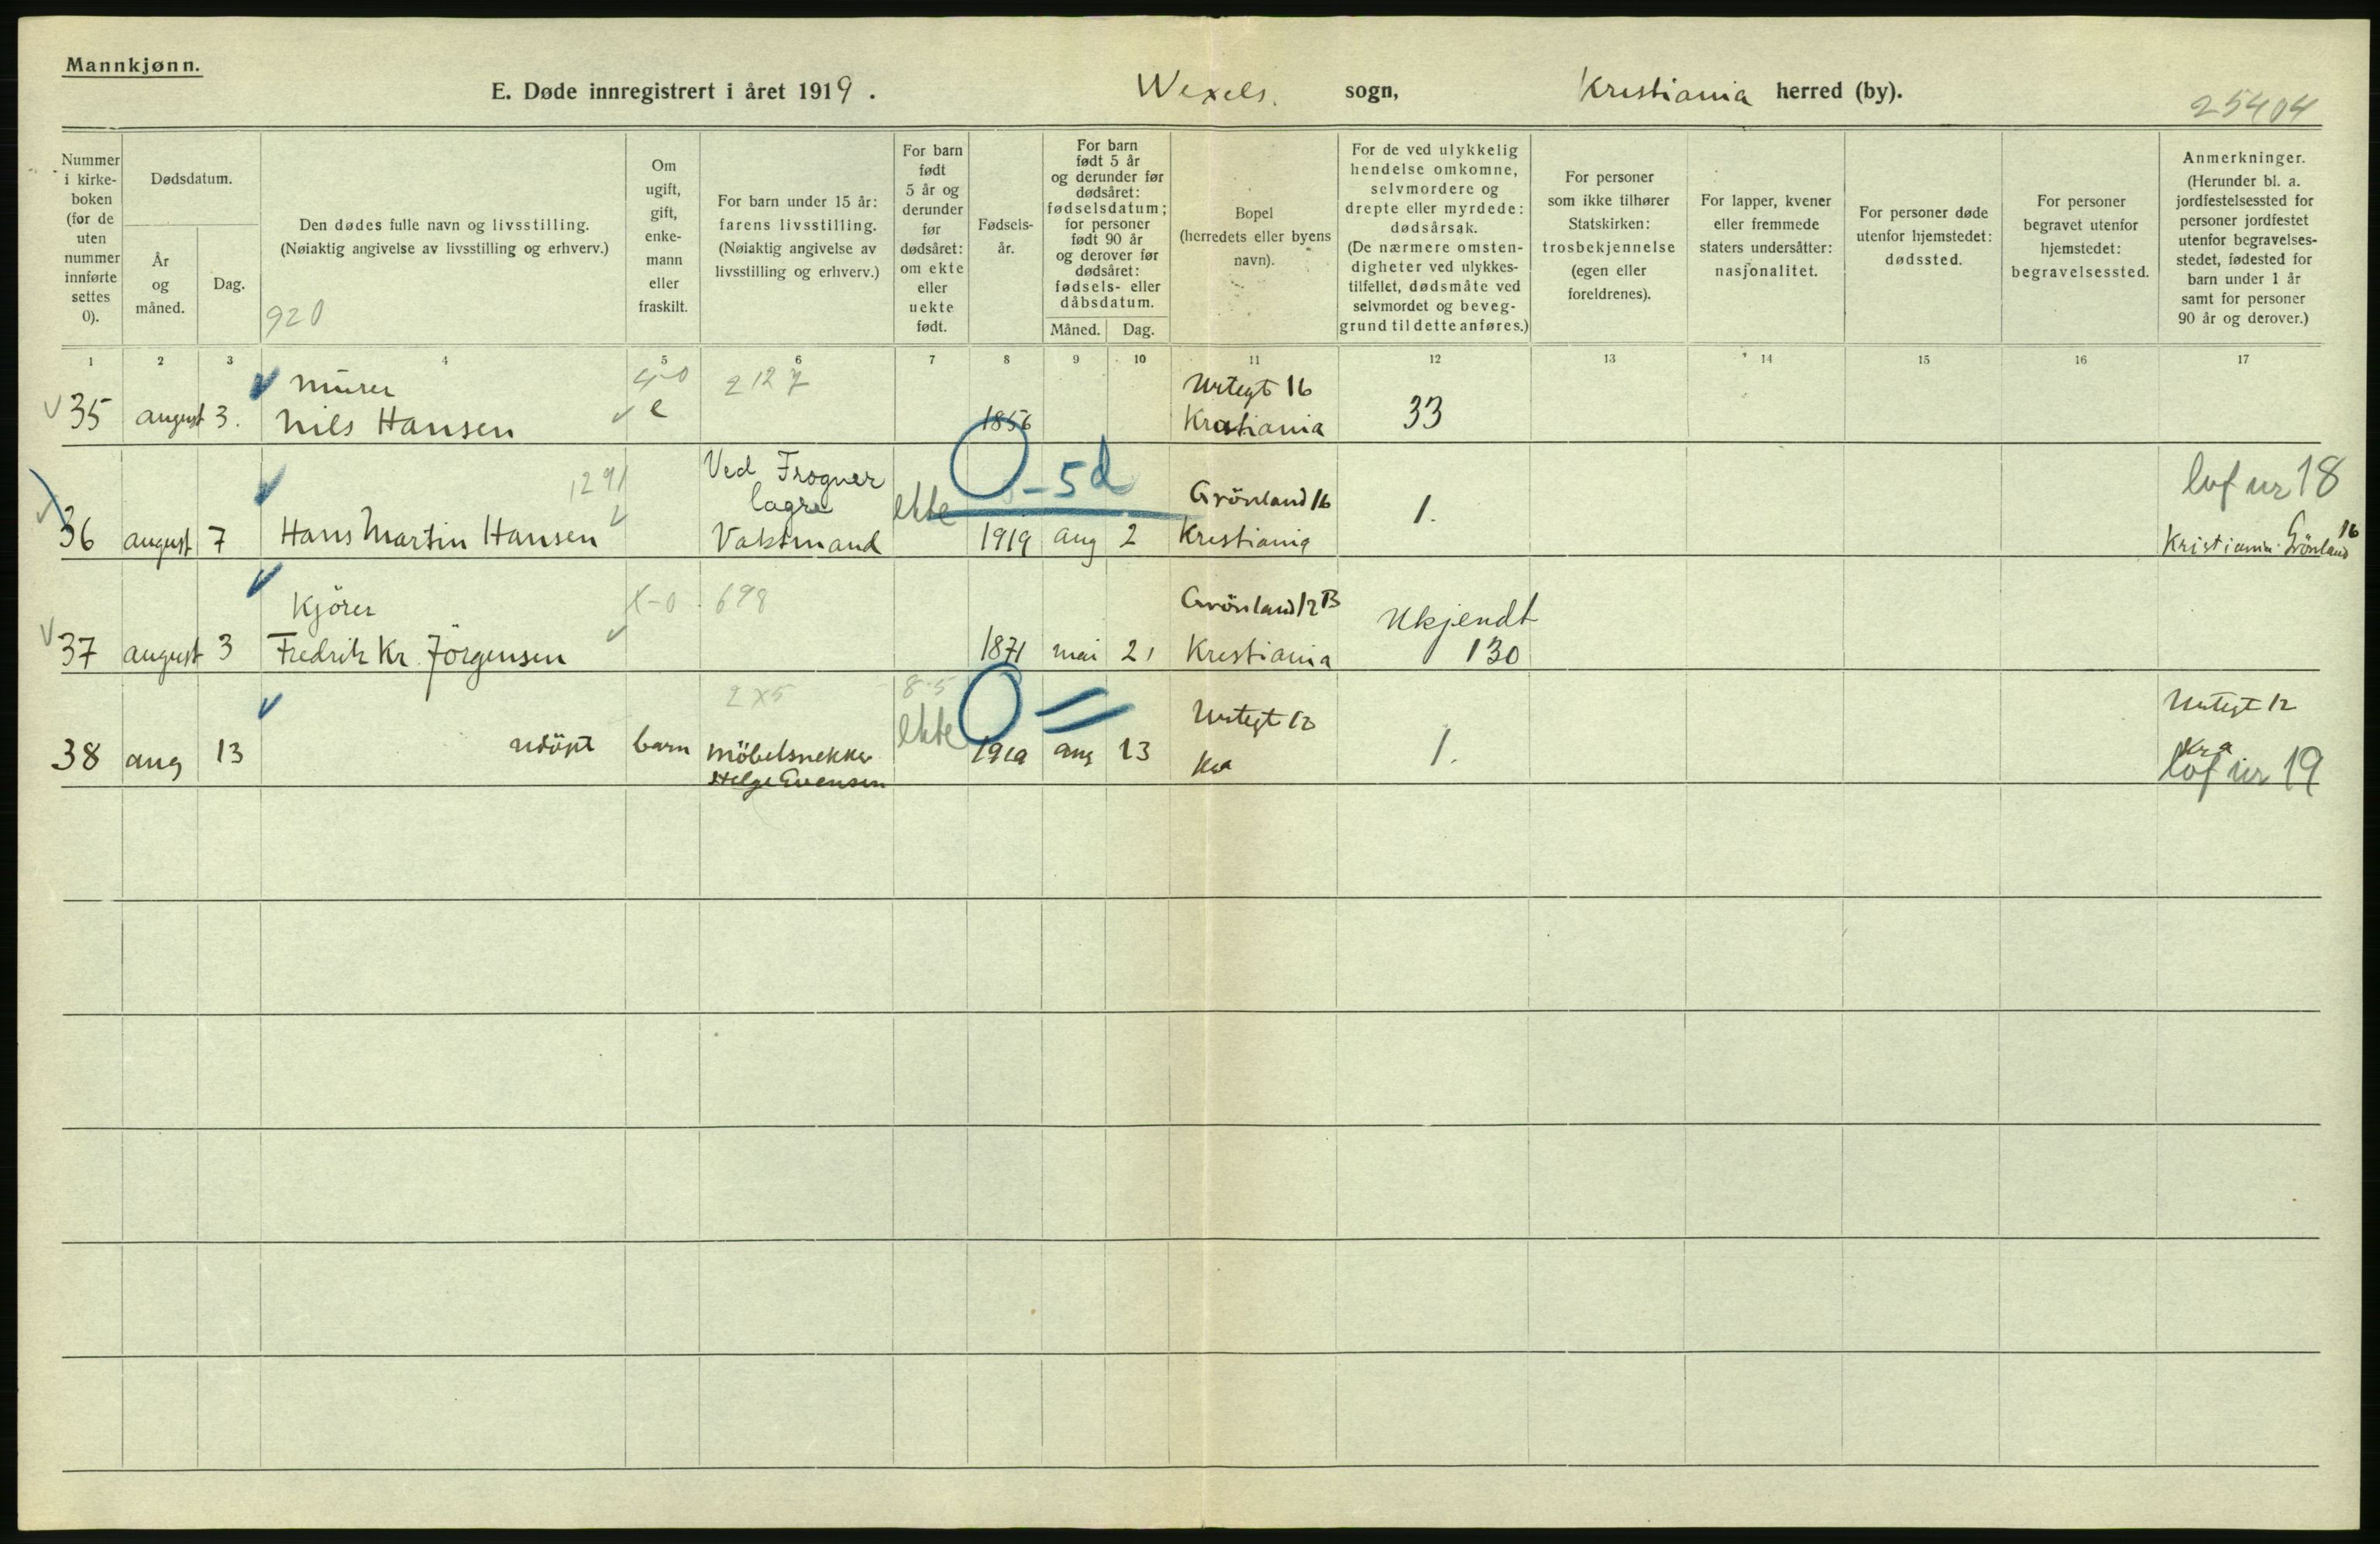 Mannkjønn.
E. Døde innregistrert i året 1919. Wexels. sogn, Kristiania herred (by).
25404
Nummer i kirke-boken (for de uten nummer innførte settes 0).
Dødsdatum.
År og måned.
Dag.
Den dødes fulle navn og livsstilling.
(Nøiaktig angivelse av livsstilling og erhverv.)
920
Om ugift, gift, enke-mann eller fraskilt.
For barn under 15 år: farens livsstilling.
(Nøiaktig angivelse av livsstilling og erhverv.)
For barn født 5 år og derunder før dødsåret: om ekte eller uekte født.
Fødsels-år.
For barn født 5 år og derunder før dødsåret: fødselsdatum; for personer født 90 år og derover før dødsåret: fødsels- eller dåbsdatum.
Måned. Dag.
Bopel (herredets eller byens navn).
For de ved ulykkelig hendelse omkomne, selvmordere og drepte eller myrdede: dødsårsak. (De nærmere omsten-digheter ved ulykkes-tilfellet, dødsmåte ved selvmordet og beveg-grund til dette anføres.)
For personer som ikke tilhører Statskirken: trosbekjennelse (egen eller foreldrenes).
For lapper, kvener eller fremmede staters undersåtter: nasjonalitet.
For personer døde utenfor hjemstedet: dødssted.
For personer begravet utenfor hjemstedet: begravelsessted.
Anmerkninger. (Herunder bl. a. jordfestelsessted for personer jordfestet utenfor begravelses-stedet, fødested for barn under 1 år samt for personer 90 år og derover.)
1 2 3 4 5 6 7 8 9 10 11 12 13 14 15 16 17
Murer 4-0 2127 Urtegt 16
35 august 3. Nils Hansen e 1856 Kristiania 33
1291 Ved Frogner lagre 0-5d Grönland 16 1. lof nr 18
36 august 7 Hans Martin Hansen Vaktmand ekte 1919 aug 2 Kristiania Kristiania Grönland 16
Kjörer 698 Grönland 12 B Ukjendt
37 august 3 Fredrik Kr. Jörgensen 1871 mai 21 Kristiania 130
2x5 8-5 0 Urtegt 12 Urtegt 12
38 aug 13 udöpt barn Möbelsnekker ekte 1919 aug 13 Kra 1. Kra
Helge Evensen lof nr 19